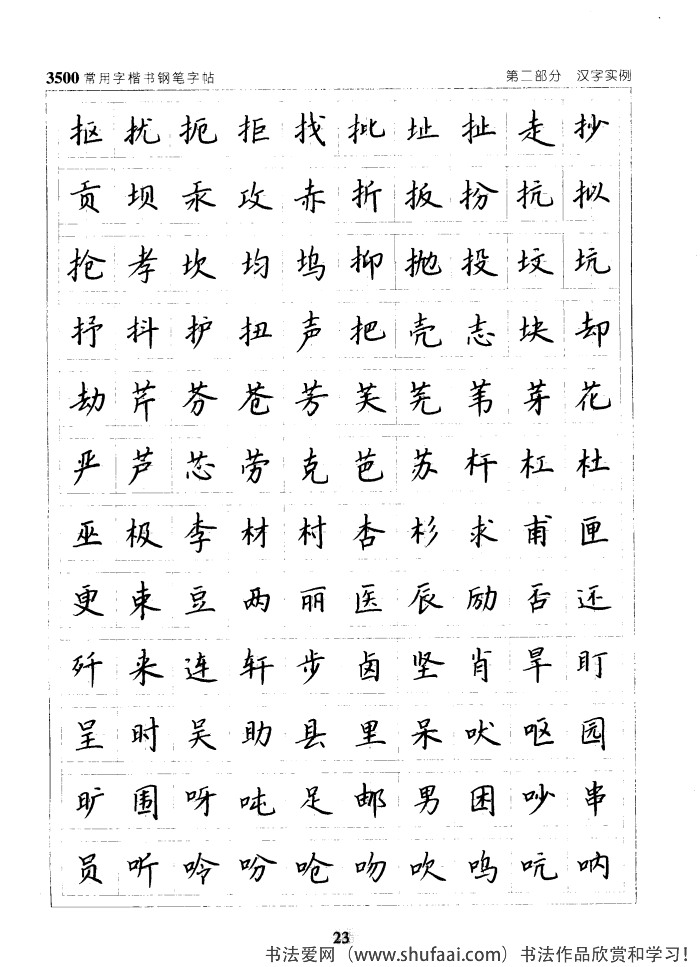 3500常用字楷书钢笔字帖 第二部分 汉字实例
抠 扰 扼 拒 找 批 址 扯 走 抄
贡 坝 汞 攻 赤 折 扳 扮 抗 拟
抢 孝 坎 均 坞 抑 抛 投 坟 坑
抒 抖 护 扭 声 把 壳 志 块 却
劫 芹 芬 苍 芳 芙 芜 苇 芽 花
严 芦 芯 劳 克 芭 苏 杆 杠 杜
巫 极 李 材 村 杏 杉 求 甫 匣
更 束 豆 两 丽 医 辰 励 否 还
歼 来 连 轩 步 卤 坚 肖 旱 盯
呈 时 吴 助 县 里 呆 吠 呕 园
旷 围 呀 吨 足 邮 男 困 吵 串
员 听 吟 吩 呛 吻 吹 呜 吭 呐
23
书法爱网（www.shufaai.com）书法作品欣赏和学习！